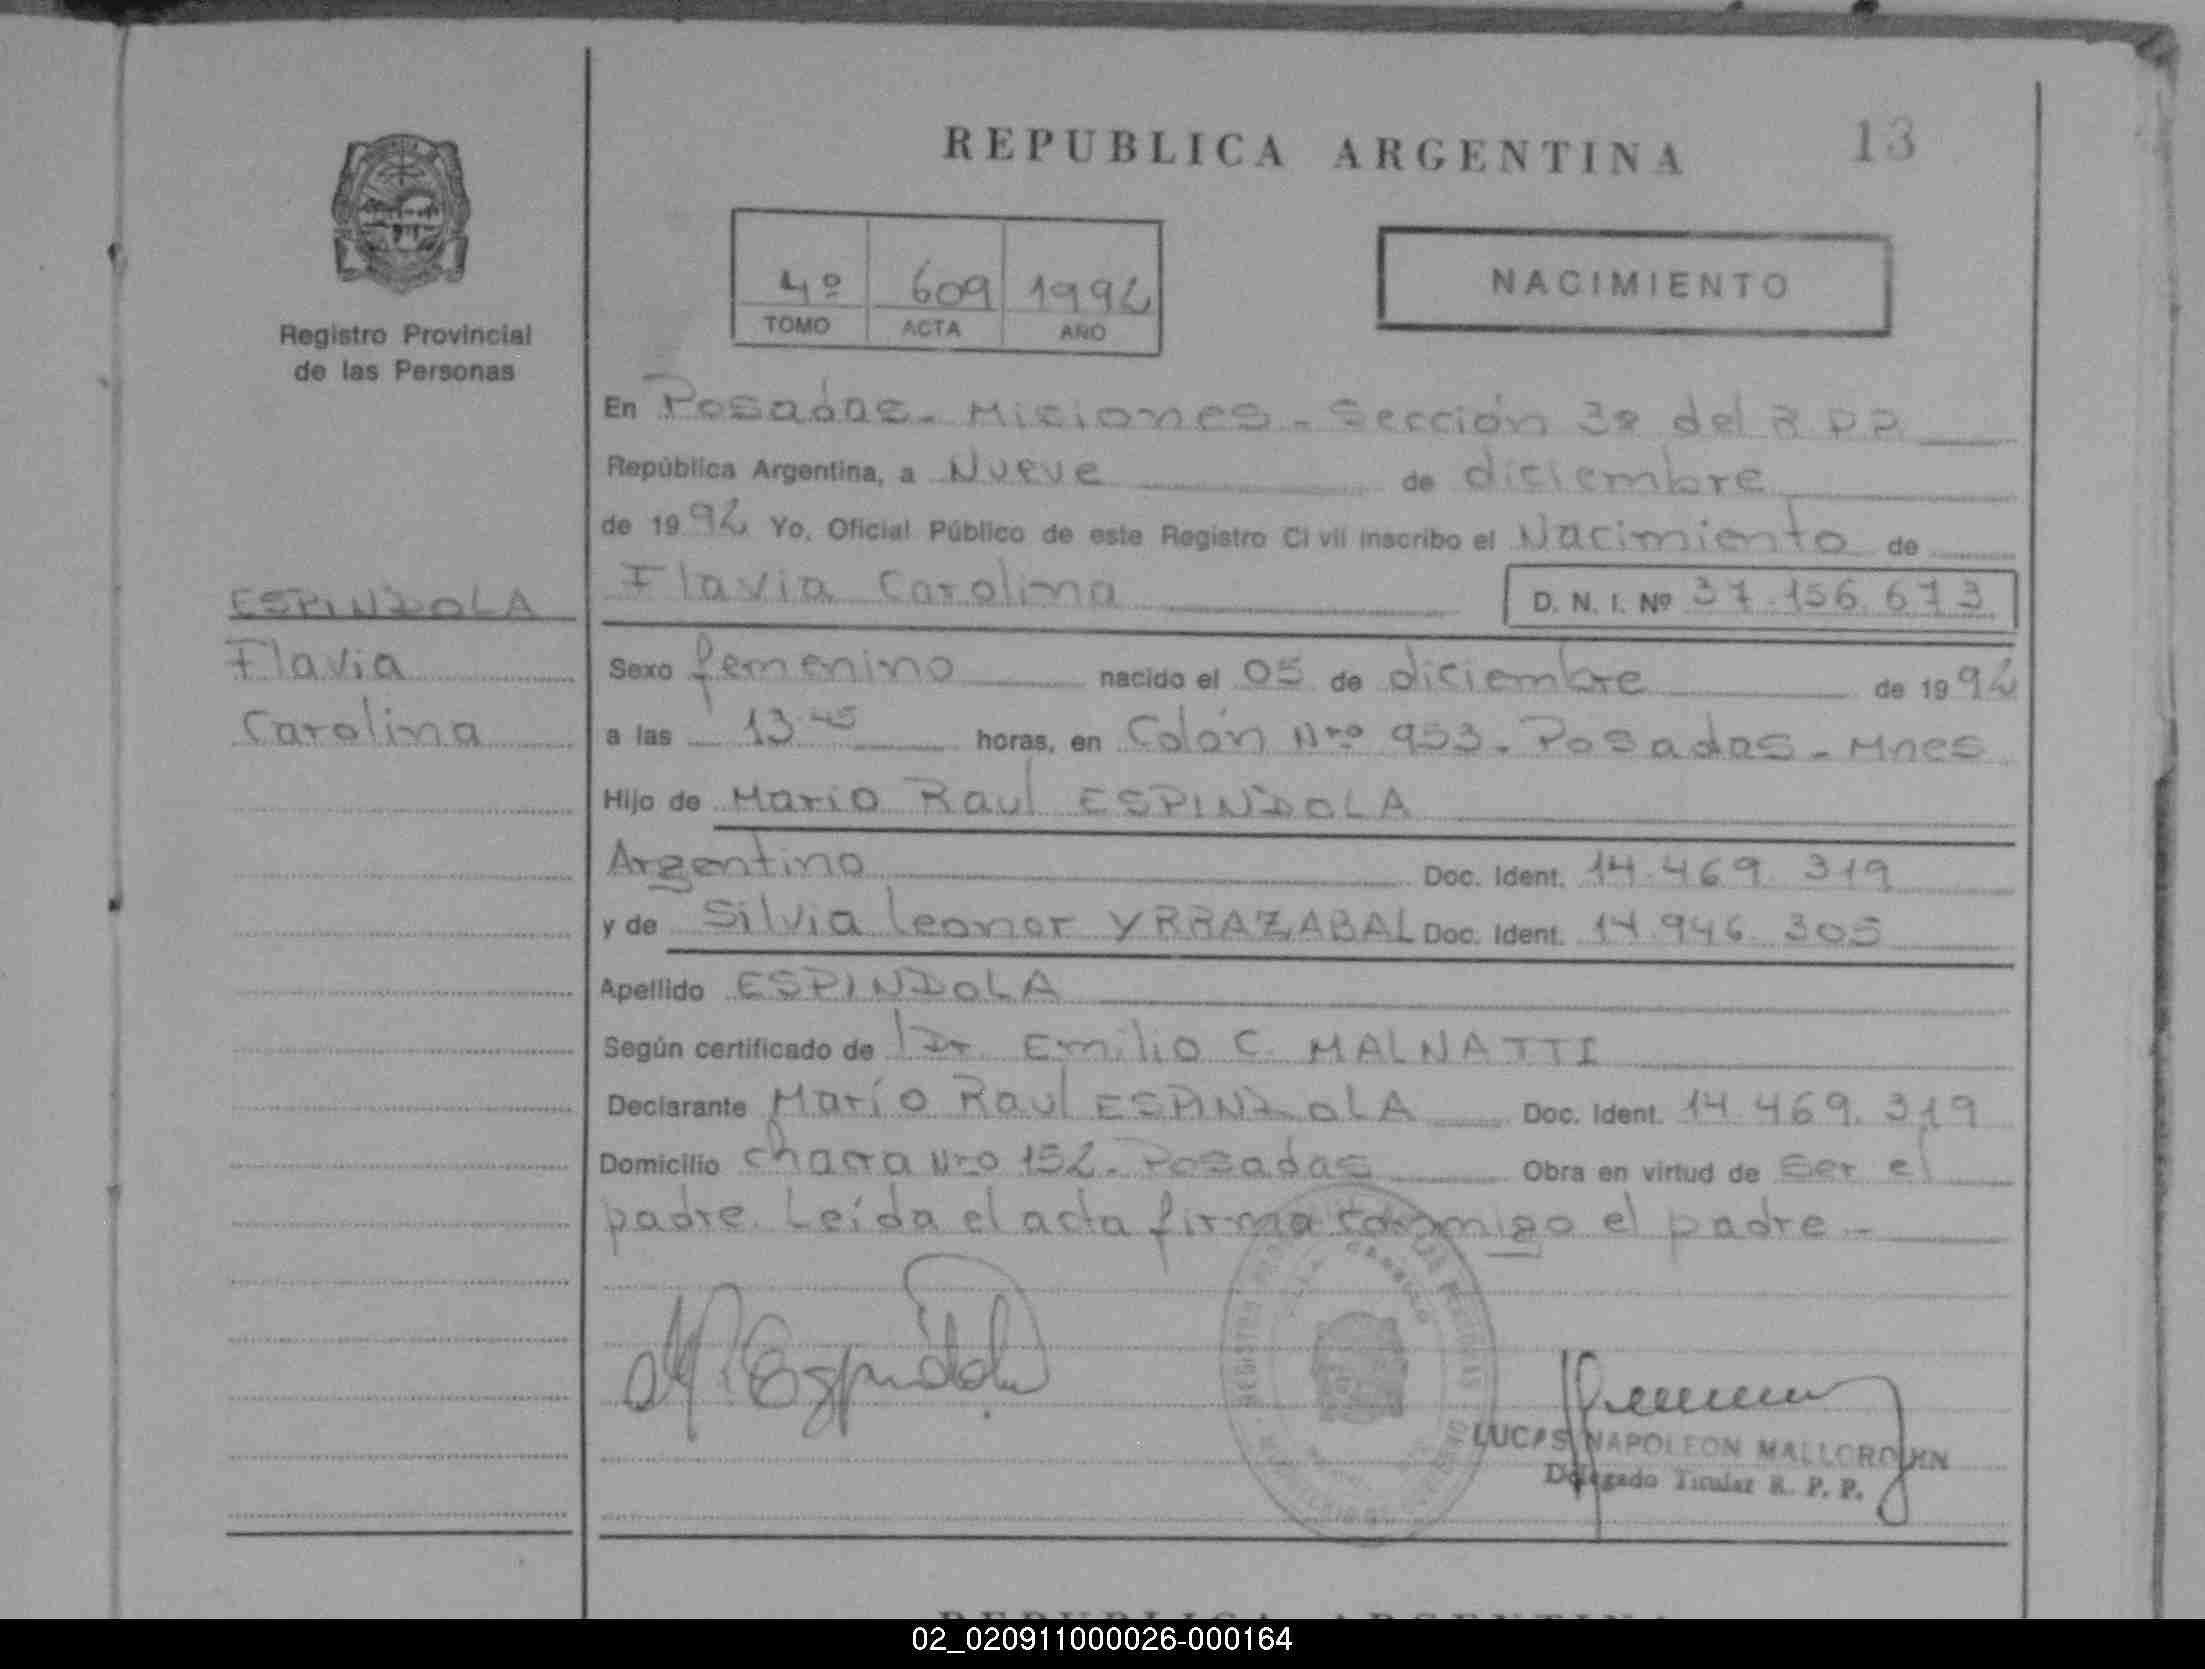 REPUBLICA ARGENTINA
13
Registro Provincial
de las Personas
4º 609 1992
TOMO ACTA AÑO
NACIMIENTO
En Posadas - Misiones - Sección 3ª del R.P.P.
República Argentina, a Nueve de diciembre
de 1992 Yo, Oficial Público de este Registro Ci vil inscribo el Nacimiento de
Flavia Carolina D. N. I. Nº 37.156.673
ESPINDOLA
Flavia
Carolina
Sexo femenino nacido el 05 de diciembre de 1992
a las 13.45 horas, en Colón Nro 953 - Posadas - Mnes
Hijo de Mario Raul ESPINDOLA
Argentino Doc. Ident. 14.469.319
y de Silvia Leonor YRRAZABAL Doc. Ident. 14.946.305
Apellido ESPINDOLA
Según certificado de Dr. Emilio C. MALNATTI
Declarante Marío Raul ESPINDOLA Doc. Ident. 14.469.319
Domicilio chacra Nro 152 - Posadas Obra en virtud de ser el
padre. Leída el acta firma conmigo el padre -
M. Espindola
LUCAS NAPOLEON
Delegado Titular R. P. P.
REPUBLICA ARGENTINA
02_020911000026-000164